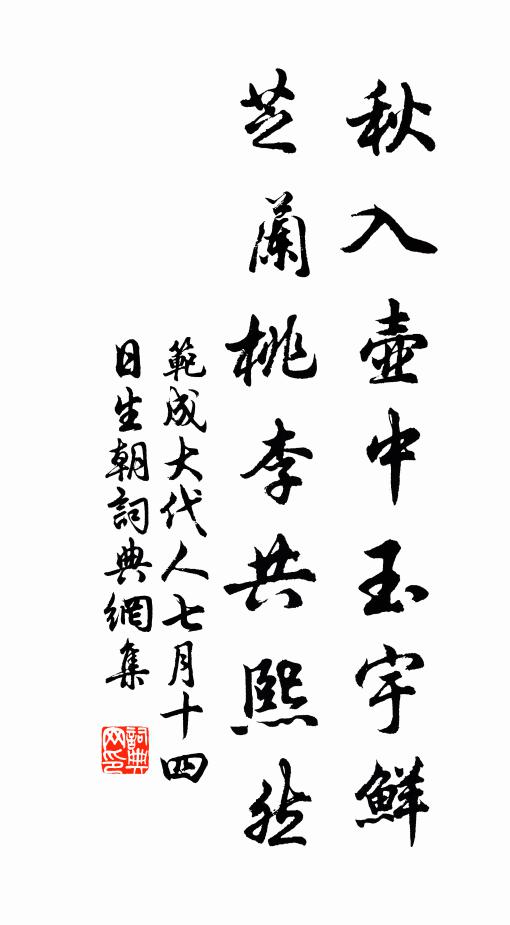 秋入壺中玉宇鮮
芝蘭桃李共熙然
範成大代人七月十四
日生朝詞典網集
詞典
网印